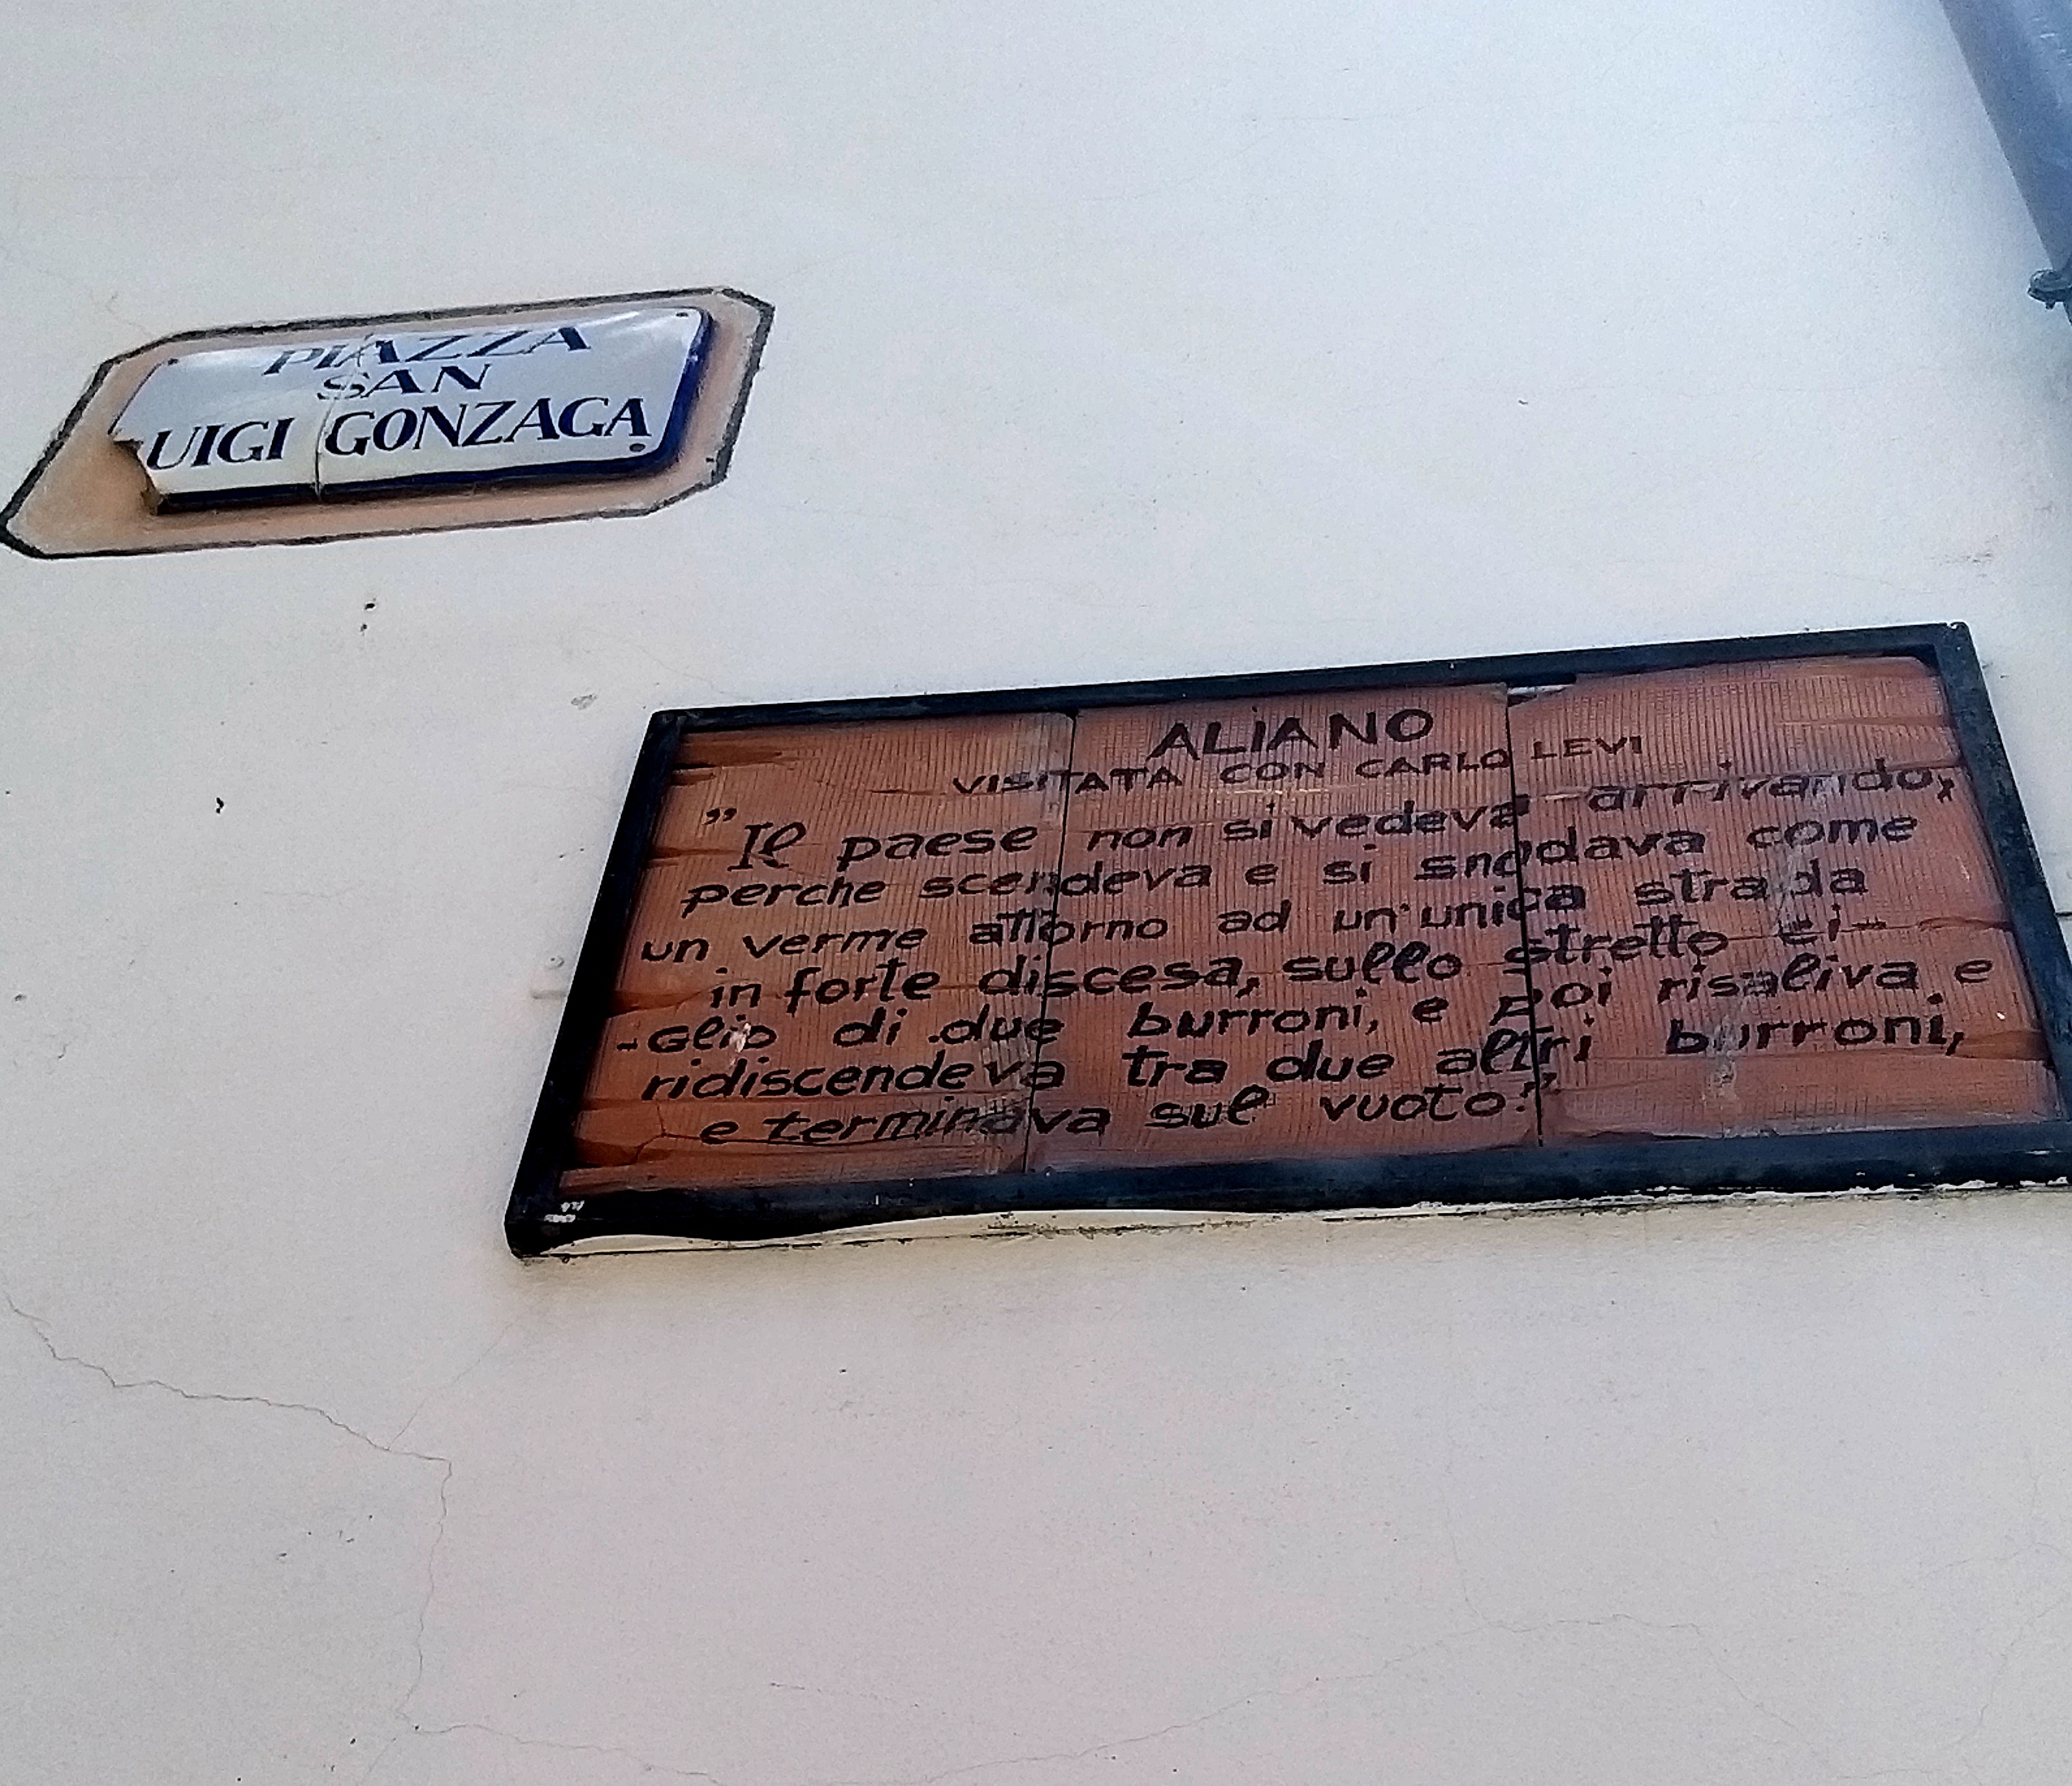 PIAZZA
SAN
UIGI GONZAGA
ALiANO
VISITATA CON CARLO LEVI
"Il paese non si vedeva arrivando,
perche scendeva e si snodava come
un verme attorno ad un'unica strada
in forte discesa, sullo stretto ci-
-Glio di due burroni, e poi risaliva e
ridiscendeva tra due altri burroni,
e terminava sul vuoto."